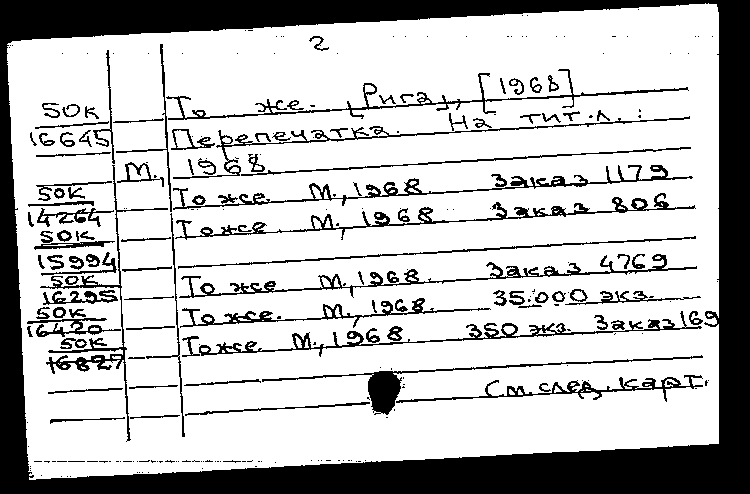 2
50К То же. [Рига], [1968].
16645 Перепечатка. На тит. л. :
М., 1968.
50К То же. М., 1968. Заказ 1179
14264 То же. М., 1968. Заказ 806
50К
15994
50К То же. М., 1968. Заказ 4769
16295
50К То же. М., 1968. 35.000 экз.
16420
50К То же. М., 1968. 350 экз. Заказ 169
16827
См. след. карт.